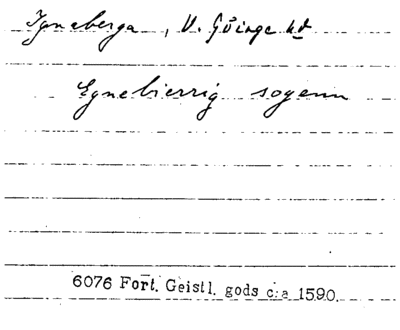 Ignaberga, V. Göinge hd
Egnebierrig sogenn
6076 Fort. Geistl. gods c:a 1590.